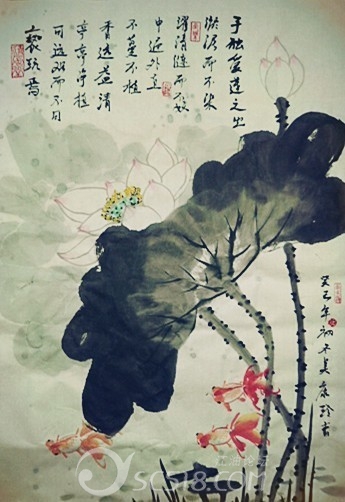 予独爱莲之出
淤泥而不染
濯清涟而不妖
中通外直
不蔓不枝
香远益清
亭亭净植
可远观而不可
亵玩焉
癸巳年初冬
SC518.com